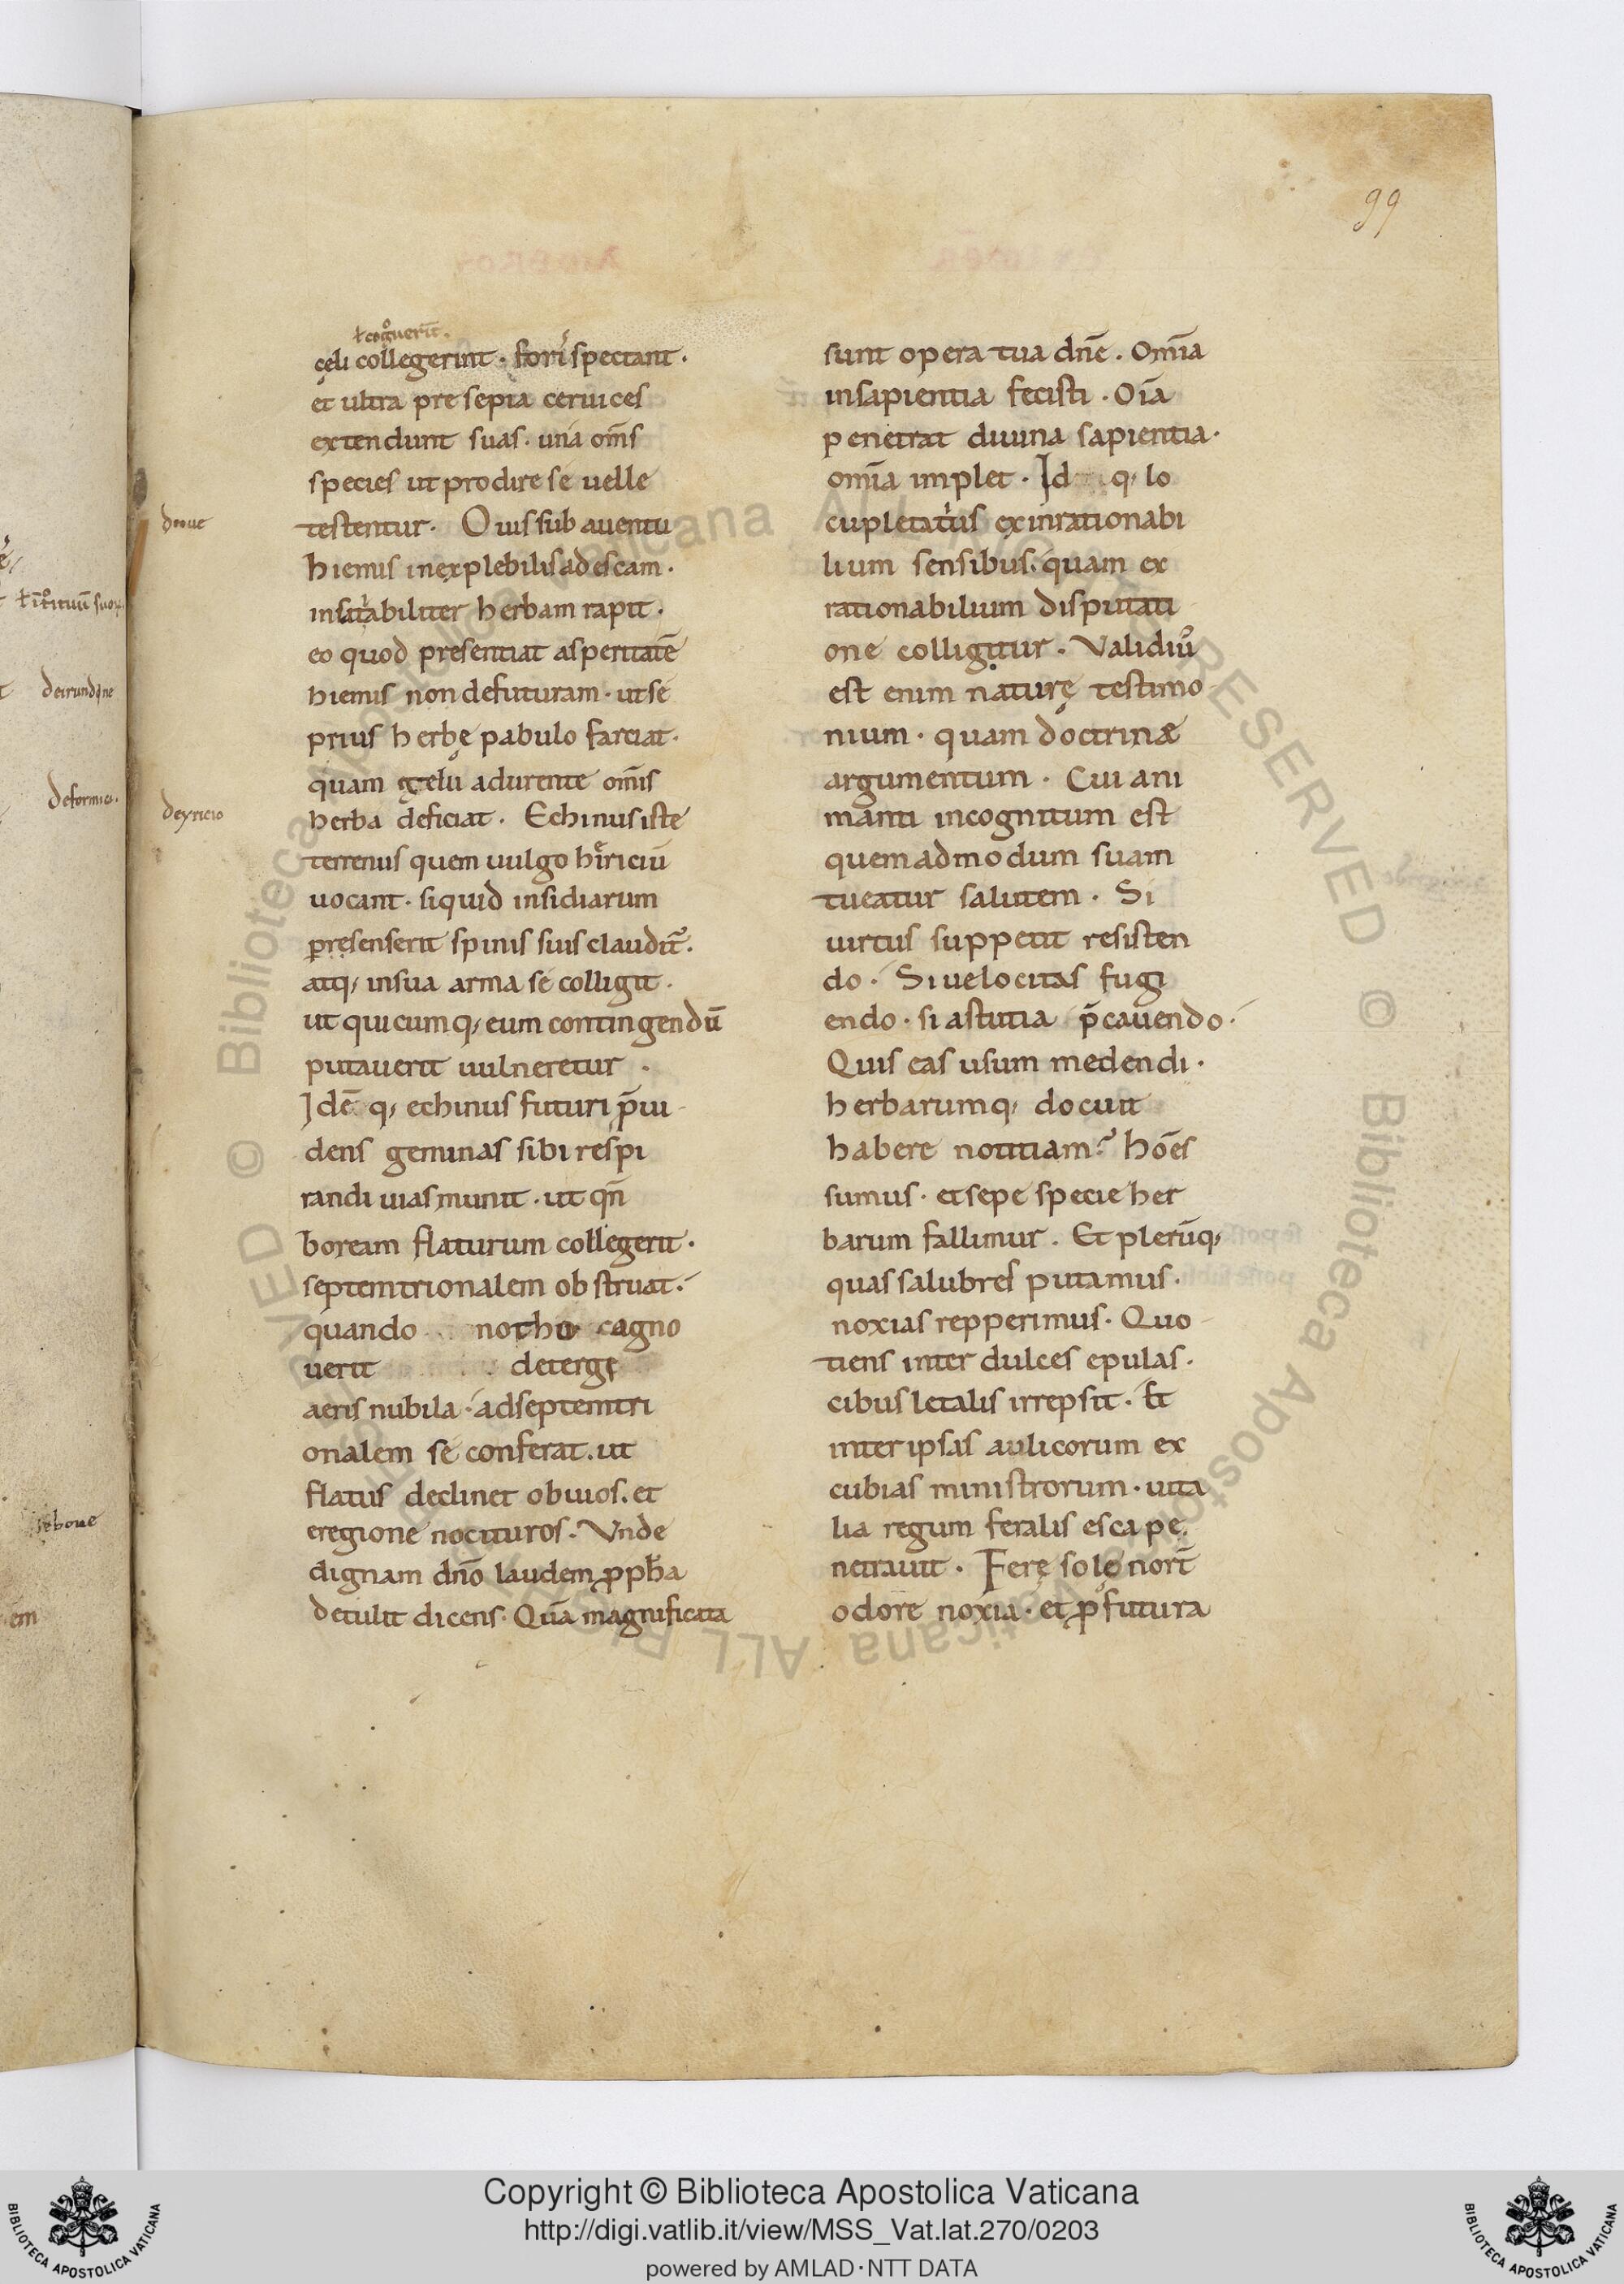 99
ł cog̊uer̄t.
cęli collegerint · fori spectant ·
et ultra presepia ceruices
extendunt suas · una om̄s
species ut prodire se uelle
testentur · Ouis sub auentu
hiemis inexplebilis ad escam ·
insatiabiliter herbam rapit ·
eo quod presentiat asperitatē
hiemis non defuturam · ut se
prius herbę pabulo farciat ·
quam gelu adurente omīs
herba deficiat · Echinus iste
terrenus quem uulgo hiriciū
uocant · siquid insidiarum
presenserit spinis suis claudit᷑ ·
atq; in sua arma se colligit ·
ut quicumq; eum contingendū
putauerit uulneretur ·
Idē q; echinus futuri p̄ui
dens geminas sibi respi
randi uias munit · ut qn̄
boream flaturum collegerit ·
septemtrionalem obstruat ·
quando notho cagno
uerit deterge
aeris nubila · ad septemtri
onalem se conferat · ut
flatus declinet obuios · et
e regione nocituros · Vnde
dignam dn̄o laudem ꝓph̄a
detulit dicens · Quā magnificata
de oue
deyricio
sunt opera tua dn̄e · Om̄ia
in sapientia fecisti · Oīa
penetrat diuina sapientia ·
om̄ia implet · Id q; lo
cupletatius ex inrationabi
lium sensibus · quam ex
rationabilium disputati
one colligitur · Validiu᷒
est enim naturę testimo
nium · quam doctrinæ
argumentum · Cui ani
manti incognitum est
quemadmodum suam
tueatur salutem · Si
uirtus suppetit resisten
do · Si uelocitas fugi
endo · si astutia p̄cauendo ·
Quis eas usum medendi ·
herbarumq; docuit
habere notitiam? hōes
sumus · et sepe specie her
barum fallimur · Et plerūq;
quas salubres putamus ·
noxias repperimus · Quo
tiens inter dulces epulas ·
cibus letalis irrepsit · Et
inter ipsas aulicorum ex
cubias ministrorum · uita
lia regum feralis esca pe
netrauit · Ferę sole nor̄t
odore noxia · et ꝓfutura
de irundine
de formica
de boue
Copyright © Biblioteca Apostolica Vaticana
http://digi.vatlib.it/view/MSS_Vat.lat.270/0203
powered by AMLAD·NTT DATA
BIBLIOTECA APOSTOLICA VATICANA
BIBLIOTECA APOSTOLICA VATICANA